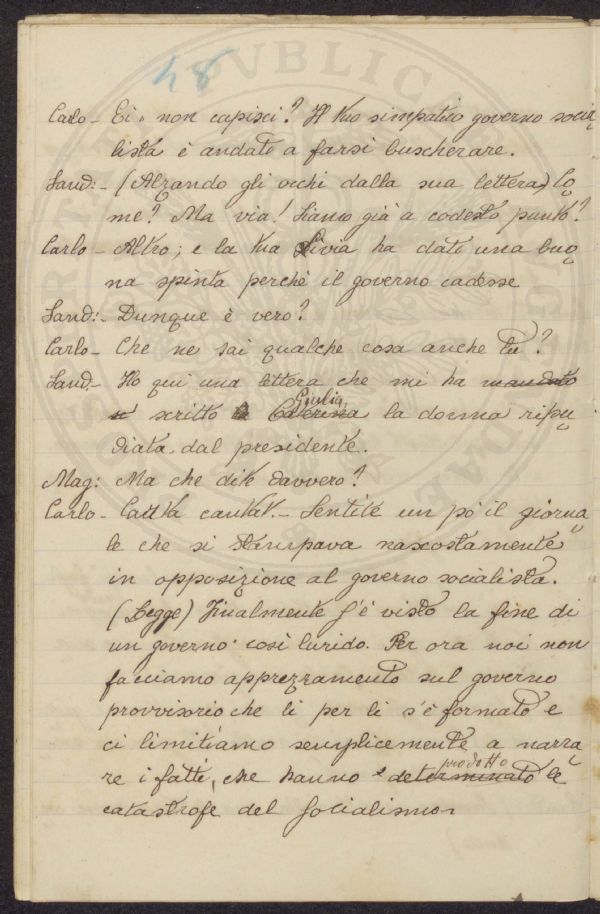 48
Carlo - Ei, non capisci? Il tuo simpatico governo socia
lista è andato a farsi buscherare.
Sand: - (Alzando gli occhi dalla sua lettera) Co
me? Ma via! Siamo già a codesto punto?
Carlo - Altro; e la tua Livia ha dato una buo
na spinta perchè il governo cadesse
Sand: - Dunque è vero?
Carlo - Che ne sai qualche cosa anche tu?
Sand. - Ho qui una lettera che mi ha mandato
scritto la Caterina Giulia la donna ripu
diata dal presidente.
Mag: Ma che dite davvero?
Carlo - Carta cantat. - Sentite un pò il giorna
le che si stampava nascostamente
in opposizione al governo socialista.
(Legge) Finalmente s'è visto la fine di
un governo così lurido. Per ora noi non
facciamo apprezzamento sul governo
provvisorio che lì per lì s'è formato e
ci limitiamo semplicemente a narra
re i fatti, che hanno determinato prodotto la
catastrofe del Socialismo
PVBLIC